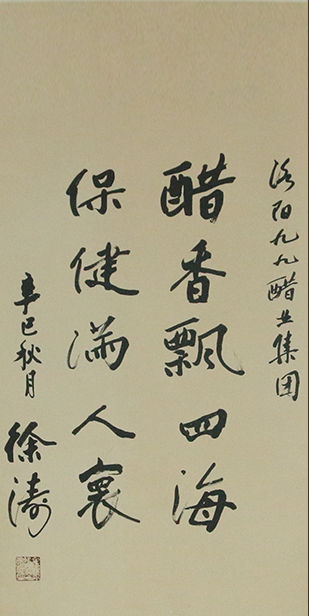 洛阳九九醋业集团
醋香飘四海
保健满人寰
辛巳秋月
徐涛